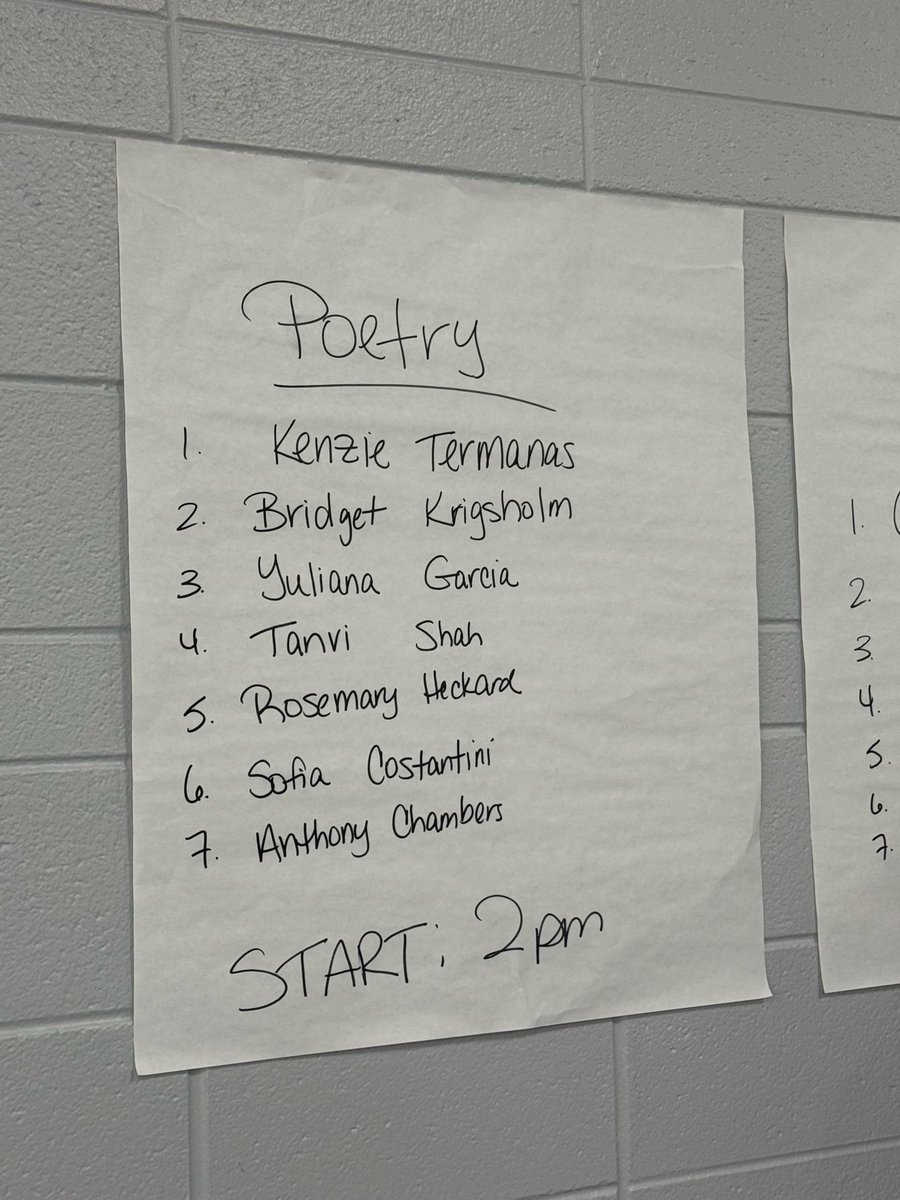 Poetry
1. Kenzie Termanas
2. Bridget Krigsholm
3. Yuliana Garcia
4. Tanvi Shah
5. Rosemary Heckard
6. Sofia Costantini
7. Anthony Chambers
START: 2pm
1.
2.
3.
4.
5.
6.
7.